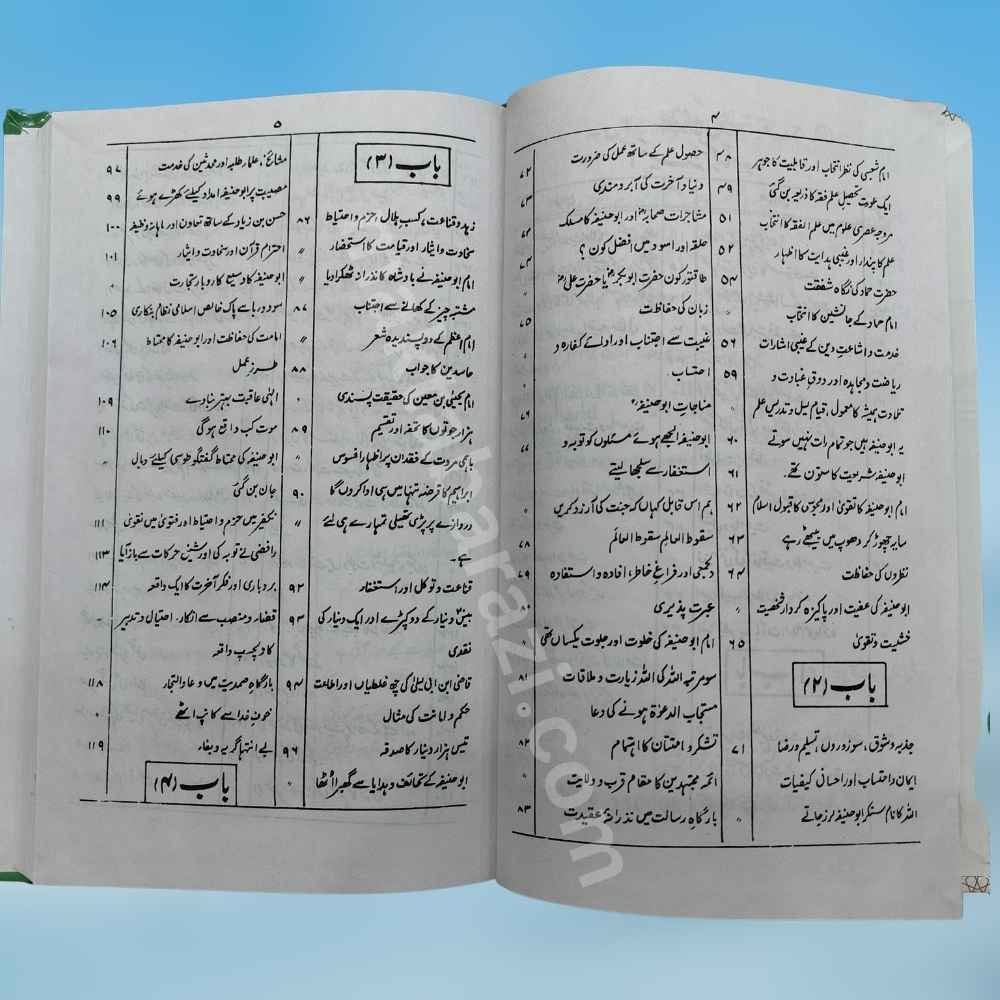 ۴
امام شعبی کی نظر انتخاب اور قابلیت کا جوہر ۴۸
ایک عورت تحصیل علم فقہ کا ذریعہ بن گئی ۴۹
مروجہ عصری علوم میں علم الفقہ کا انتخاب ۵۱
علم کا پندار اور غیبی ہدایت کا اظہار ۵۲
حضرت حماد کی نگاہ شفقت ۵۴
امام حماد کے جانشین کا انتخاب 〃
خدمت و اشاعتِ دین کے غیبی اشارات ۵۶
ریاضت و مجاہدہ اور ذوقِ عبادت و ۵۹
تلاوت ہمیشہ کا معمول، قیام لیل و تدریس علم 〃
یہ ابو حنیفہ ہیں جو تمام رات نہیں سوتے ۶۰
ابو حنیفہ شریعت کا ستون تھے۔ ۶۱
امام ابو حنیفہ کا تقویٰ اور مجوسی کا قبول اسلام ۶۲
سایہ چھوڑ کر دھوپ میں بیٹھے رہے ۶۳
نظروں کی حفاظت ۶۴
ابو حنیفہ کی عفیت اور پاکیزہ کردار شخصیت 〃
خشیت و تقویٰ ۶۵
باب (۲)
جذبہ و شوق، سوز و روں، تسلیم و رضا ۷۱
ایمان و احتساب اور احسانی کیفیات
اللہ کا نام سنکر ابو حنیفہ لرز جاتے 〃
حصول علم کے ساتھ عمل کی ضرورت ۷۲
دنیا و آخرت کی آبرو مندی ۷۳
مشاجرات صحابہؓ اور ابو حنیفہ کا مسلک ۷۴
علقہ اور اسود میں افضل کون؟ ۷۴
طاقتور کون حضرت ابو بکرؓ یا حضرت علیؓ
زبان کی حفاظت ۷۵
غیبت سے اجتناب اور ادائے کفارہ و
احتساب۔
مناجاتِ ابو حنیفہؒ ۷۶
ابو حنیفہ الجھے ہوئے مسئلوں کو توبہ و ۷۷
استغفار سے سلجھا لیتے
ہم اس قابل کہاں کہ جنت کی آرزو کریں
سقوط العالِم سقوط العالَم ۷۸
دلجمعی اور فراغِ خاطر، افادہ و استفادہ ۷۹
عبرت پذیری ۸۰
امام ابو حنیفہ کی خلوت اور جلوت یکساں تھی
سو مرتبہ اللہ کی اللہ زیارت و ملاقات ۸۱
مستجاب الدعوۃ ہونے کی دعا
تشکر و امتنان کا اہتمام ۸۲
ائمہ مجتہدین کا مقام قرب و ولایت
بارگاہِ رسالت میں نذرانۂ عقیدت ۸۳
۵
باب (۳)
زہد و قناعت، کسبِ ہلال، حزم و احتیاط ۸۶
سخاوت و ایثار اور قیامت کا استحضار 〃
امام ابو حنیفہ نے بادشاہ کا نذرانہ ٹھکرا دیا 〃
مشتبہ چیز کے کھانے سے اجتناب ۸۷
امام اعظم کے دو پسندیدہ شعر 〃
حاسدین کا جواب ۸۸
امام یحییٰ بن معین کی حقیقت پسندی
ہزار جوتوں کا تحفہ اور تقسیم ۸۹
باہمی مروت کے فقدان پر اظہارِ افسوس 〃
ابراہیم کا قرضہ تنہا میں ہی ادا کروں گا ۹۰
دروازے پر پڑی تھیلی تمہارے ہی لئے 〃
ہے۔
قناعت و توکل اور استغفار ۹۲
بیسؔ دنیار کے دو کپڑے اور ایک دنیار کی ۹۳
نقدی
قاضی ابن ابی لیلیٰ کی چھ غلطیاں اور اطاعت ۹۴
حکم و امانت کی مثال
تیس ہزار دنیار کا صدقہ ۹۶
ابو حنیفہ کے تحائف و ہدایا سے گھبرا اُٹھا
مشائخ، علماء طلبہ اور محدثین کی خدمت ۹۷
مصیبت پر ابو حنیفہ امداد کیلئے کھڑے ہوئے ۹۹
حسن بن زیاد کے ساتھ تعاون اور ماہانہ وظیفہ ۱۰۰
احترام قرآن اور سخاوت و ایثار ۱۰۱
ابو حنیفہ کا وسیع کاروبار تجارت
سود و ربا سے پاک خالص اسلامی نظام بنکاری ۱۰۵
امانت کی حفاظت اور ابو حنیفہ کا محتاط ۱۰۶
طرزِ عمل
الٰہی عاقبت بہتر بنا دے ۱۰۹
موت کب واقع ہو گی ۱۱۰
ابو حنیفہ کی محتاط گفتگو طوسی کیلئے وبال
جان بن گئی
تکفیر میں حزم و احتیاط اور فتویٰ میں تقویٰ ۱۱۱
رافضی نے توبہ کی اور شنیع حرکات سے باز آیا ۱۱۳
بردباری اور فکرِ آخرت کا ایک واقعہ ۱۱۴
قضاء و منصب سے انکار۔ احتیال و تدبیر
کا دلچسپ واقعہ
بارگاہِ صمدیت میں دعا و التجار ۱۱۸
خوفِ خدا سے کانپ اٹھے
بے انتہا گریہ و بغار ۱۱۹
باب (۴)